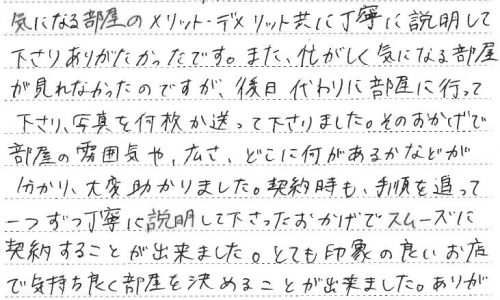 気になる部屋のメリット・デメリット共に丁寧に説明して
下さりありがたかったです。また、忙がしく気になる部屋
が見れなかったのですが、後日代わりに部屋に行って
下さり、写真を何枚か送って下さりました。そのおかげで
部屋の雰囲気や、広さ、どこに何があるかなどが
分かり、大変助かりました。契約時も、手順を追って
一つずつ丁寧に説明して下さったおかげでスムーズに
契約することが出来ました。とても印象の良いお店
で気持ち良く部屋を決めることが出来ました。ありが